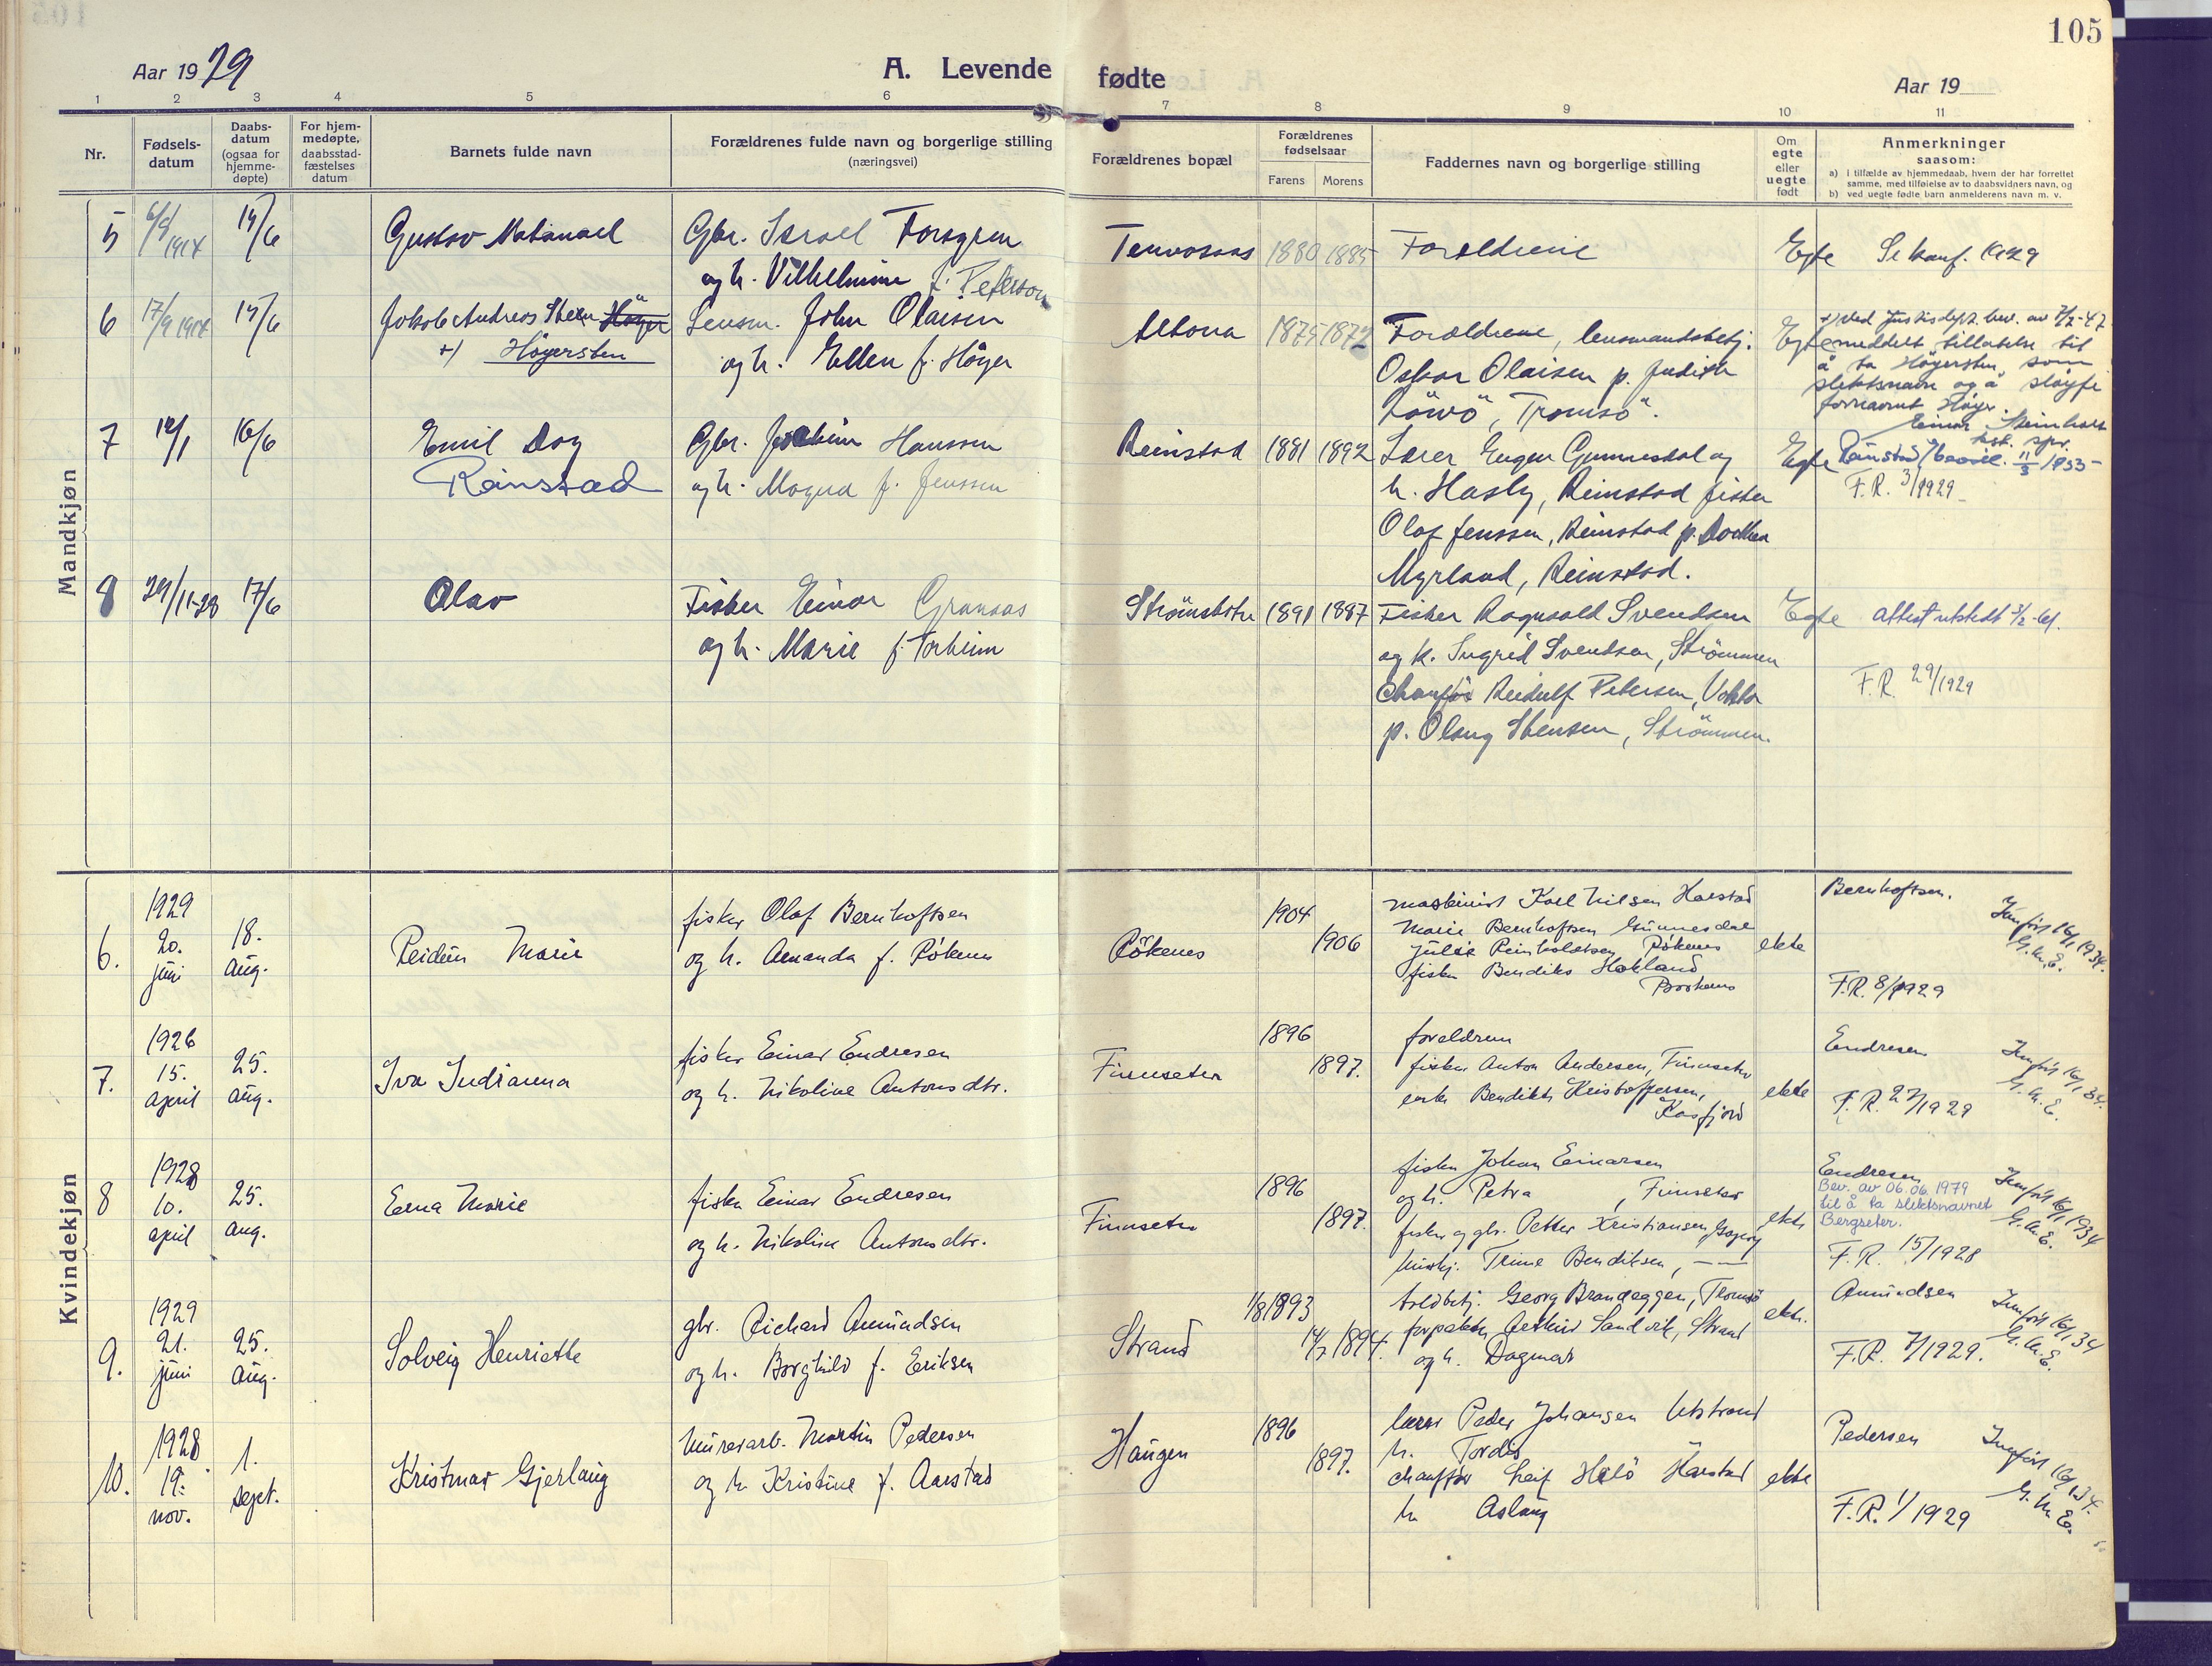 105
Aar 1929
A. Levende
fødte
Aar 19
1 2 3 4 5 6 7 8 9 10 11
Nr.
Fødsels-
datum
Daabs-
datum
(ogsaa for
hjemme-
døpte)
For hjem-
medøpte,
daabsstad-
fæstelses
datum
Barnets fulde navn
Forældrenes fulde navn og borgerlige stilling
(næringsvei)
Forældrenes bopæl
Forældrenes
fødselsaar
Farens
Morens
Faddernes navn og borgerlige stilling
Om
egte
eller
uegte
født
Anmerkninger
saasom:
a) i tilfælde av hjemmedaab, hvem der har forrettet
samme, med tilføielse av to daabsvidners navn, og
b) ved uegte fødte barn anmelderens navn m. v.
Mandkjøn
5
1914
14/6
Gustav Natanael
Gbr. Israel Forsgren
og h. Vilhelmine f. Peterson
1880 1885
Foreldrene
Egte
Se konf. 1929
6
17/9 1914
14/6
Jakob Andreas Steen Höyer
+) Höyersten
Lensm. John Olaisen
og h. Ellen f. Höyer
Altona
1875 1872
Foreldrene, lensmandsbetj.
Oskar Olaisen p. Judith
Tromsö.
Egte
+) Ved Justisdept. bev. av 7/2-47
meddelt tillatelse til
å ta Höyersten, som
slektsnavn og å sløyfe
fornavnet Höyer.
Einar Steinhart
7
12/1
16/6
Emil Dag
Reinstad
Gbr. Joakim Hanssen
og h. Magna f. Jenssen
Reinstad
1881 1892
Lærer Eugen Gunnesdal og
h. Hasby, Reinstad fisker
Olaf Jenssen, Reinstad p. Dorthea
Myrland, Reinstad.
Egte
Reinstad 11/3 1953
F.R. 3/1929
8
29/11-28
17/6
Olav
Fisker Einar Granaas
og h. Marie f. Forheim
Strömsbotn
1891 1887
Fisker Ragnvald Svendsen
og h. Ingrid Svendsen, Strömmen
Chauffør Reidulf Petersen,
p. Olaug Stensen, Strömmen.
Egte
attest utstedt 3/2-61.
F.R. 29/1929
Kvindekjøn
6.
1929
20.
juni
18.
aug.
Reidun Marie
fisker Olaf Bernhoftsen
og h. Amanda f. Rökenes
Rökenes
1904
1906
maskinist Karl Nilsen Harstad
Marie Bernhoftsen Gunnesdal
Julie Reinholdtsen Rökenes
fisker Bendiks Hokland
ekte
Bernhoftsen.
F.R. 8/1929
Innført 16/1 1934.
G.M.E.
7.
1926
15.
april
25.
aug.
Iva Indianna
fisker Einar Endresen
og h. Nikoline Antonsdtr.
Finnseter
1896
1897.
foreldrene
fisker Anton Andersen, Finnseter
enke Bendikte Kristoffersen,
Kasfjord
ekte
Endresen
F.R. 27/1929
Innført 16/1 34.
G.M.E.
8
1928
10.
april
25.
aug.
Erna Marie
fisker Einar Endresen
og h. Nikoline Antonsdtr.
Finnseter
1896
1897.
fisker Johan Einarsen
og h. Petra , Finnseter
fisker og gbr. Petter Kristiansen
Trine Bendiksen, — —
ekte
Endresen
Bev. av 06.06.1979
til å ta slektsnavnet
Bergseter.
F.R. 15/1928
Innført 16/1 1934
G.M.E.
9.
1929
21.
juni
25.
aug.
Solveig Henriette
gbr. Richard Amundsen
og h. Borghild f. Eriksen
Strand
1/8 1893
14/7 1894.
toldbetj. Georg Brandeggen, Tromsö
forpakter Arthur Sandvik, Strand
og h. Dagmar
ekte.
Amundsen
F.R. 7/1929.
Innført 16/1 34
G.M.E.
10.
1928
19.
nov.
1.
sept.
Kristmar Gjerlaug
murerarb. Martin Pedersen
og h Kristine f. Aarstad
Haugen
1896
1897.
lærer Peder Johansen Utstrand
h. Tordis
chauffør Leif Harstad
h Aslaug
ekte
Pedersen
F.R. 1/1929
Innført 16/1 34.
G.M.E.